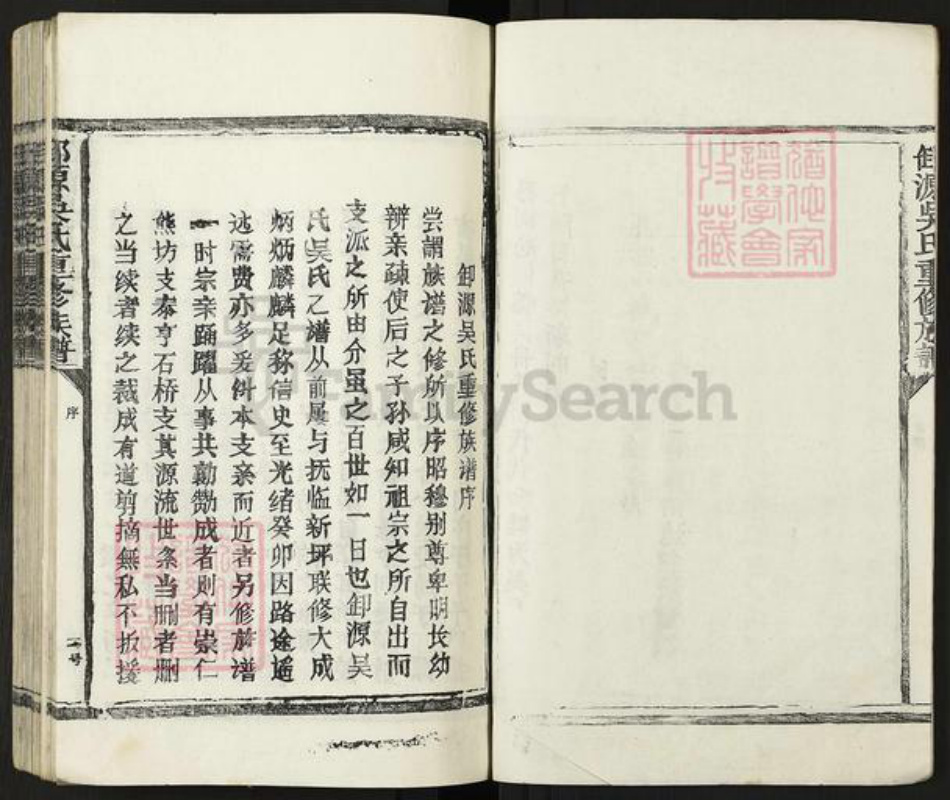 卸源吴氏重修族譜
卸源吴氏重修族谱序
尝謂族谱之修所以序昭穆别尊卑明长幼
辨亲疎使后之子孙咸知祖宗之所自出而
支派之所由分虽之百世如一日也卸源吴
氏吴氏之谱从前屡与抚临新坪联修大成
炳炳麟麟足称信史至光绪癸卯因路途遥
远需费亦多爰纠本支亲而近者另修族谱
一时宗亲踊躍从事共勷勚成者则有崇仁
熊坊支泰亨石桥支其源流世系当删者删
之当续者续之裁成有道剪摘無私不扳援
源吴氏重修族谱
序
一号
譜學會
收藏
FamilySearch